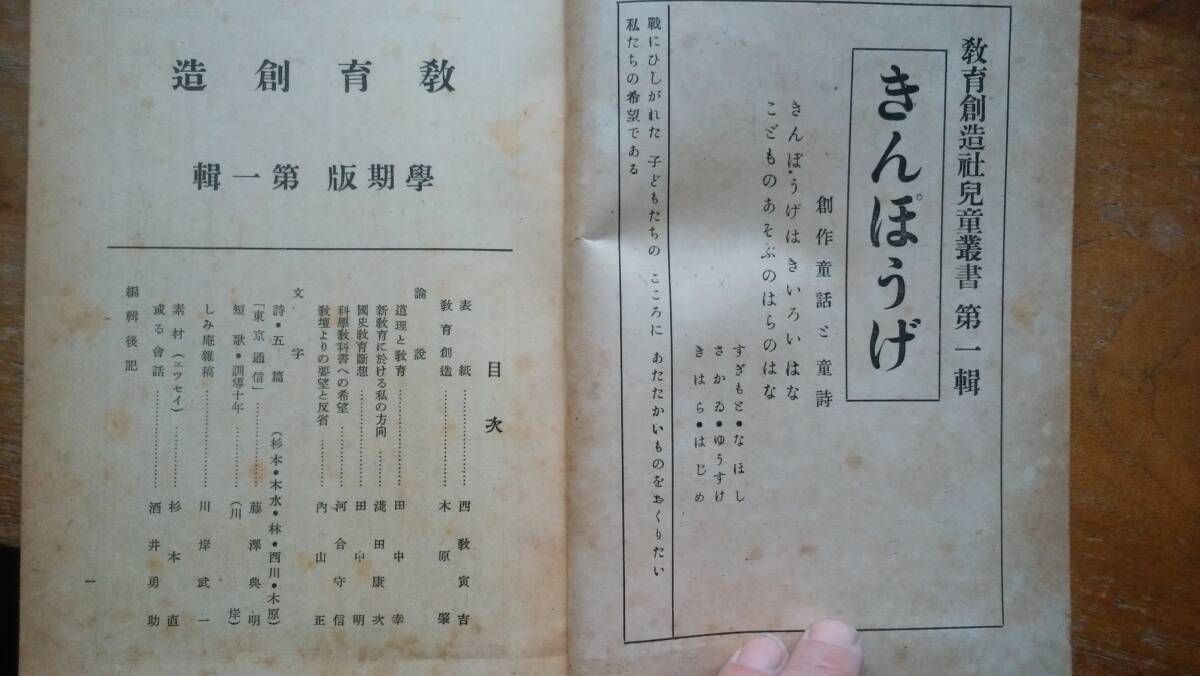 教育創造社兒童叢書 第一輯
きんぽうげ
創作童話と童詩
きんぽうげは きいろいはな
こどものあそぶのはらのはな
すぎもと・なほし
さかゐ・ゆうすけ
きはら・はじめ
戰にひしがれた 子どもたちの こころに あたたかいものをおくりたい
私たちの希望である
教育創造
學期版 第一輯
目次
表紙……………西教寅吉
教育創造……………木原肇
論説
道理と教育……………田中幸
新教育に於ける私の方向……淺田康次
國史教育斷想……………田中明
科學教科書への希望………河合守信
教壇よりの要望と反省……内山正
文字
詩・五篇(杉本・木水・林・西川・木原)
「東京通信」…………藤澤典明
短歌・訓導十年…………(川岸)
しみ庵雜稿……………川岸武一
素材(エツセイ)…………杉本直
或る會話……………酒井勇助
編輯後記
一